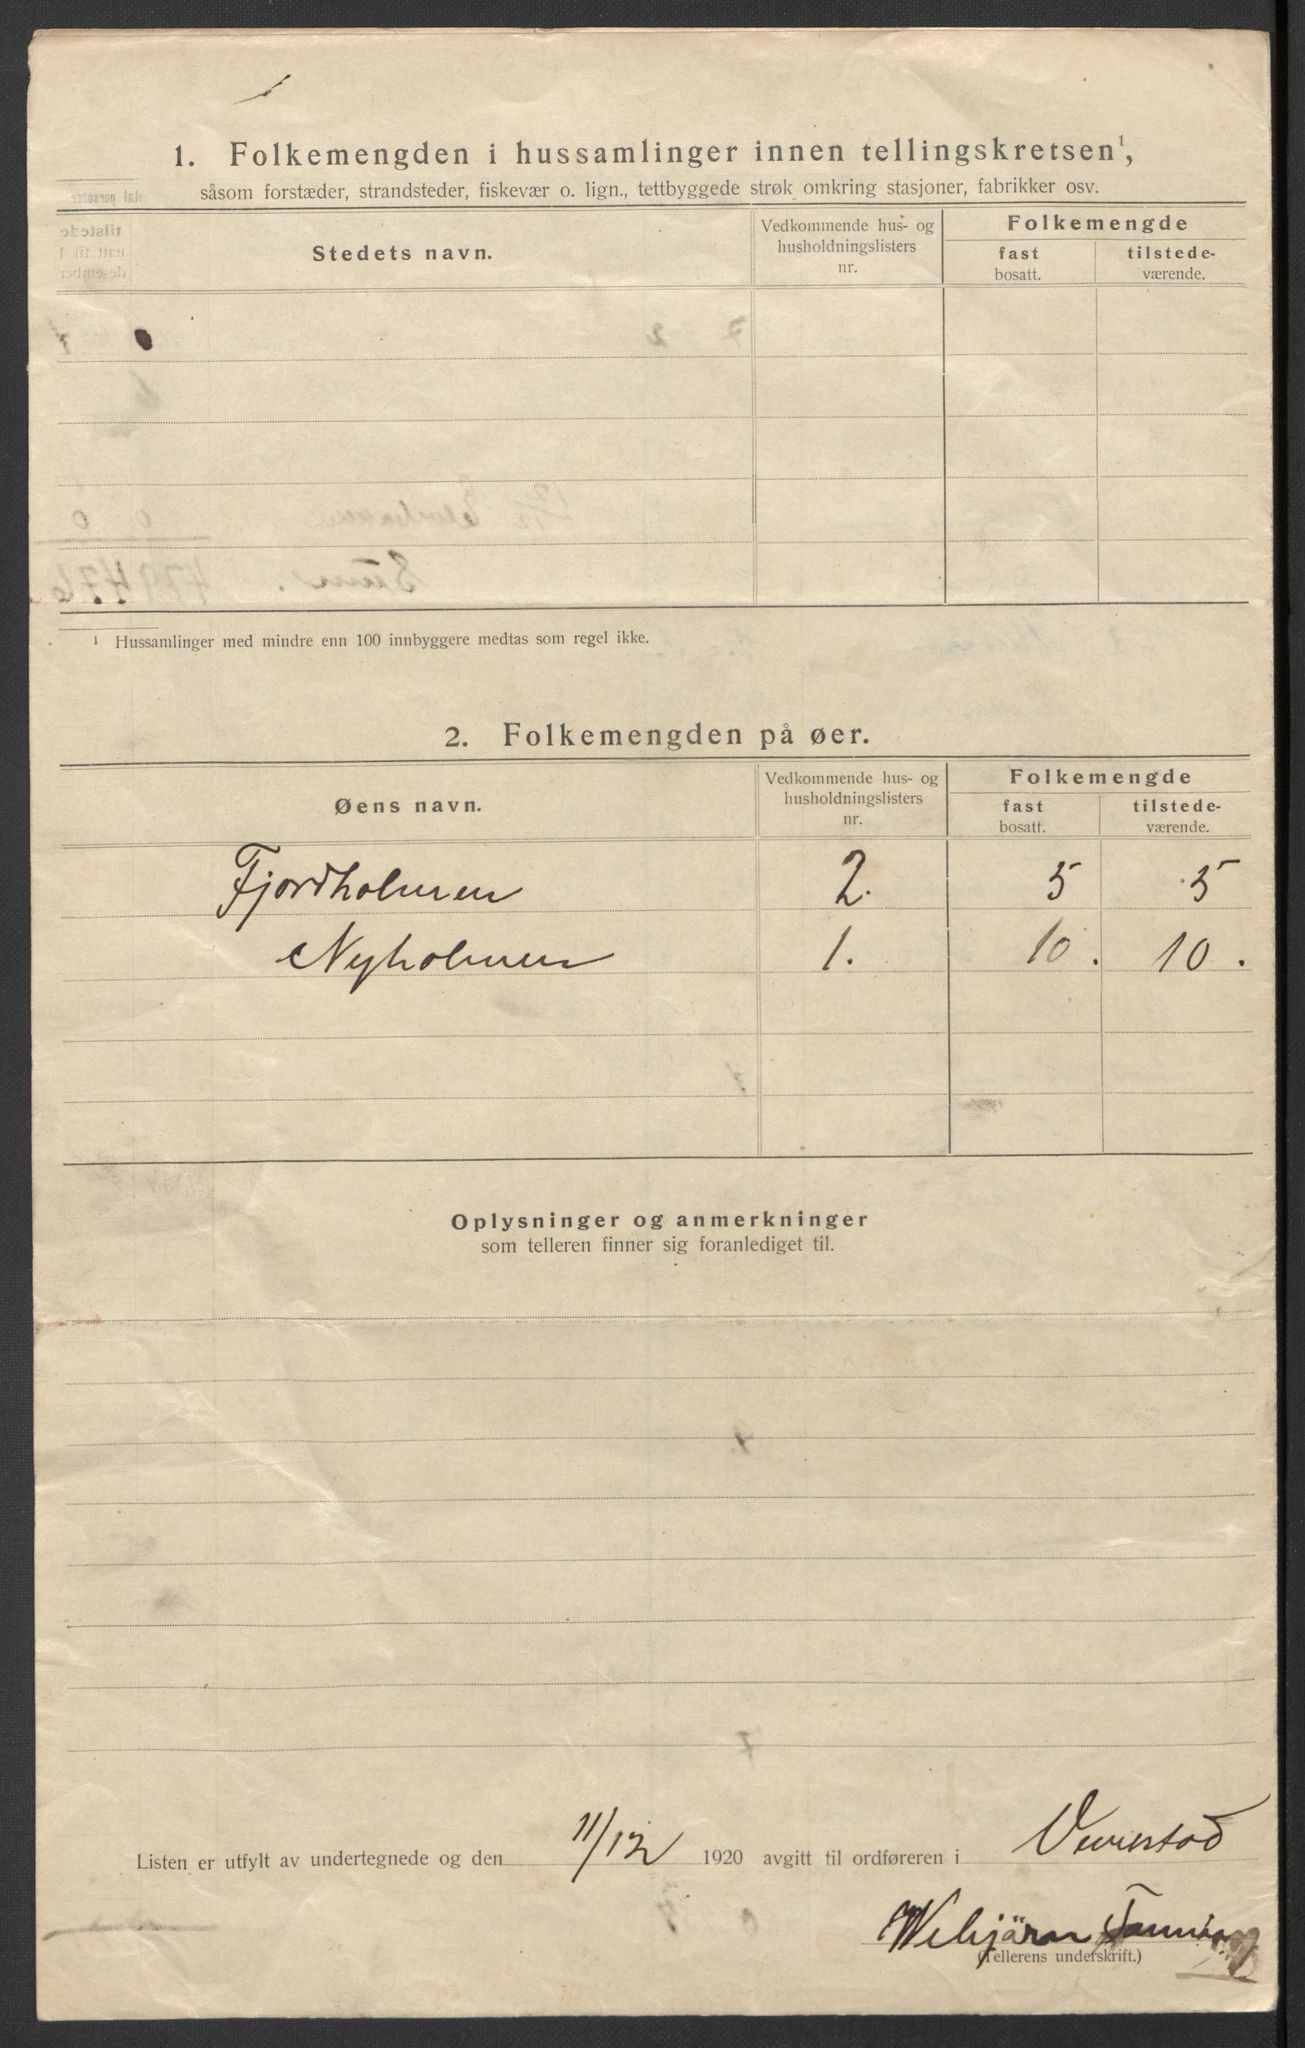 1. Folkemengden i hussamlinger innen tellingskretsen¹,
såsom forstæder, strandsteder, fiskevær o. lign., tettbyggede strøk omkring stasjoner, fabrikker osv.
Stedets navn.
Vedkommende hus- og husholdningslisters nr.
Folkemengde
fast bosatt.
tilstede-værende.
¹ Hussamlinger med mindre enn 100 innbyggere medtas som regel ikke.
2. Folkemengden på øer.
Øens navn.
Vedkommende hus- og husholdningslisters nr.
Folkemengde
fast bosatt.
tilstede-værende.
Fjordholmen 2. 5 5
Nyholmen 1. 10. 10.
Oplysninger og anmerkninger
som telleren finner sig foranlediget til.
Listen er utfylt av undertegnede og den 11/12 1920 avgitt til ordføreren i Vevestad
(Tellerens underskrift.)